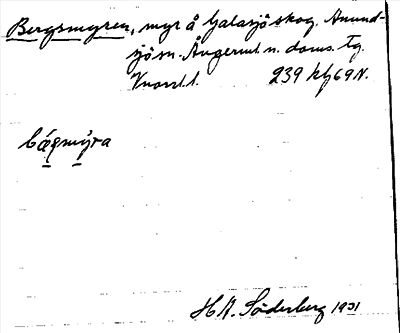 Bergsmyren, myr å Galasjö skog. Anund-
sjö sn. Ångerml. n. doms. Tg.
239 kl 69 N.
bágmýra
H. Söderberg 1931